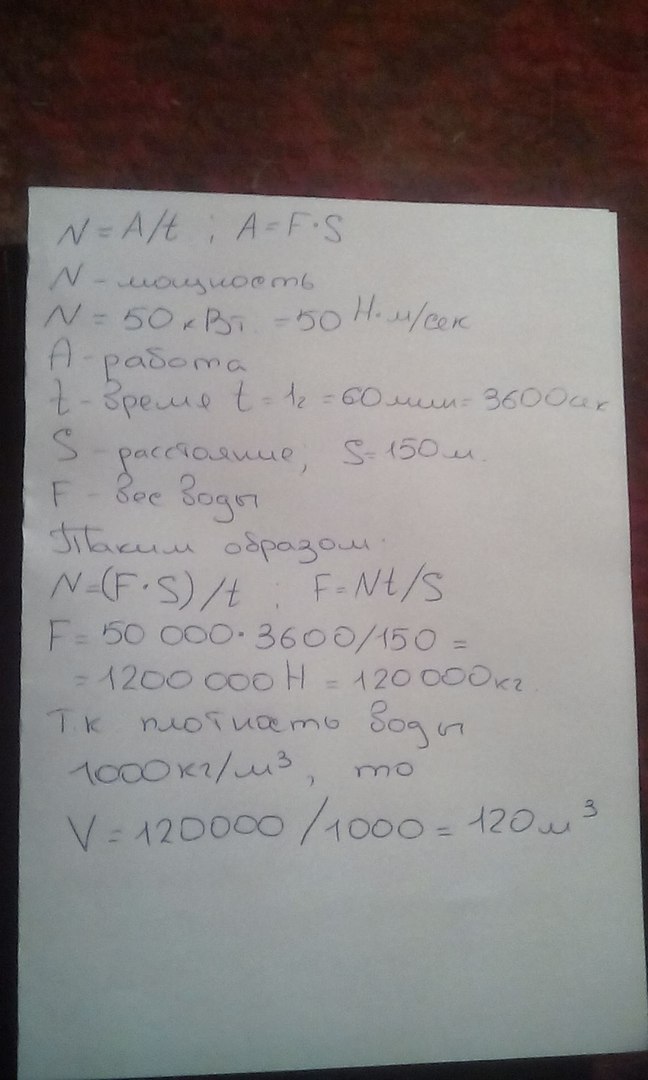 N = A/t ; A = F·S
N - мощность
N = 50 кВт. = 50 Н·м/сек
A - работа
t - время t = 1г = 60мин = 3600сек
S - расстояние, S = 150м.
F - вес воды
Таким образом.
N = (F·S)/t ; F = Nt/S
F = 50 000·3600/150 =
= 1200 000Н = 120 000кг.
Т.к плотность воды
1000кг/м³, то
V = 120000/1000 = 120м³